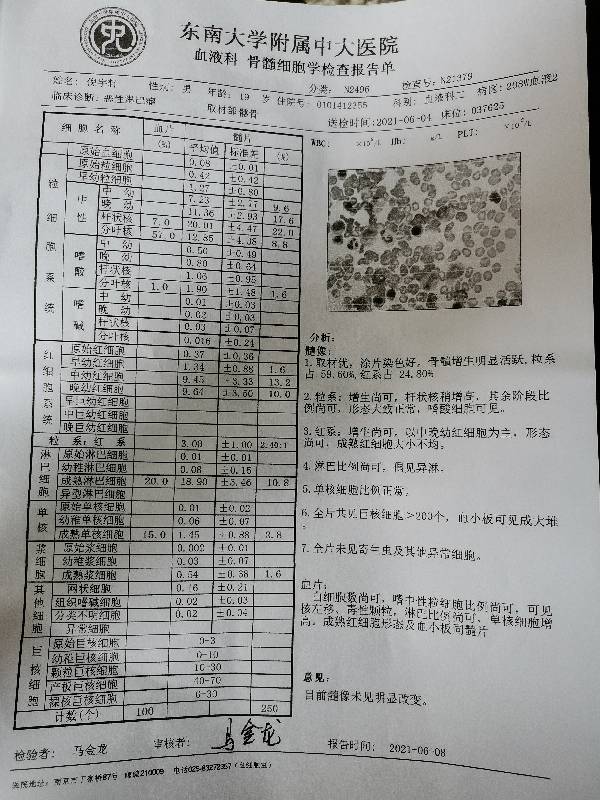 东南大学附属中大医院
血液科 骨髓细胞学检查报告单
姓名: 性别: 男 年龄: 19 岁 住院号: 0101412355 分类: N2496 检查号: N21379
临床诊断: 恶性淋巴瘤 取材部位: 髂骨 科别: 血液科二 病区: 29BW血液2
送检时间: 2021-06-04 床位: 037625
WBC: ×10⁹/L Hb: g/L PLT: ×10⁹/L
细胞名称 血片 (%) 髓片 平均值 标准差 (%)
粒细胞系统
原始血细胞 0.08 ±0.01
原始粒细胞 0.42 ±0.42
早幼粒细胞 1.27 ±0.80
中性 中幼 7.23 ±2.77 9.6
晚幼 11.36 ±2.93 17.6
杆状核 7.0 20.01 ±4.47 22.0
分叶核 57.0 12.85 ±4.38 8.8
嗜酸 中幼 0.50 ±0.49
晚幼 0.80 ±0.64
杆状核 1.06 ±0.95
分叶核 1.0 1.90 ±1.48 1.6
嗜碱 中幼 0.01 ±0.03
晚幼 0.02 ±0.03
杆状核 0.03 ±0.07
分叶核 0.016 ±0.24
红细胞系统
原始红细胞 0.37 ±0.36
早幼红细胞 1.34 ±0.88 1.6
中幼红细胞 9.45 ±3.33 13.2
晚幼红细胞 9.64 ±3.50 10.0
早巨幼红细胞
中巨幼红细胞
晚巨幼红细胞
粒系:红系 3.00 ±1.00 2.40:1
淋巴细胞
原始淋巴细胞 0.01 ±0.01
幼稚淋巴细胞 0.08 ±0.15
成熟淋巴细胞 20.0 18.90 ±5.46 10.8
异型淋巴细胞
单核
原始单核细胞 0.01 ±0.02
幼稚单核细胞 0.06 ±0.07
成熟单核细胞 15.0 1.45 ±0.88 2.8
浆细胞
原始浆细胞 0.002 ±0.01
幼稚浆细胞 0.03 ±0.07
成熟浆细胞 0.54 ±0.38 1.6
其他细胞
网状细胞 0.16 ±0.21
组织嗜碱细胞 0.02 ±0.03
分类不明细胞 0.02 ±0.04
异常细胞
巨核细胞
原始巨核细胞 0-3
幼稚巨核细胞 0-10
颗粒巨核细胞 10-30
产板巨核细胞 40-70
裸核巨核细胞 0-30
计数(个) 100 250
分析:
髓像:
1.取材优,涂片染色好。骨髓增生明显活跃,粒系
占 59.60%,红系占 24.80%
2.粒系:增生尚可,杆状核稍增高,其余阶段比
例尚可,形态大致正常,嗜酸细胞可见。
3.红系:增生尚可,以中晚幼红细胞为主,形态
尚可,成熟红细胞大小不均。
4.淋巴比例尚可,偶见异淋。
5.单核细胞比例正常。
6.全片共见巨核细胞>200个,血小板可见成大堆。
7.全片未见寄生虫及其他异常细胞。
血片:
白细胞数尚可,嗜中性粒细胞比例尚可,可见
核左移、毒性颗粒,淋巴比例尚可,单核细胞增
高,成熟红细胞形态及血小板同髓片
意见:
目前髓像未见明显改变。
检验者: 马金龙 审核者: 马金龙 报告时间: 2021-06-08
医院地址: 南京市丁家桥87号 邮编210009 电话025-83272357